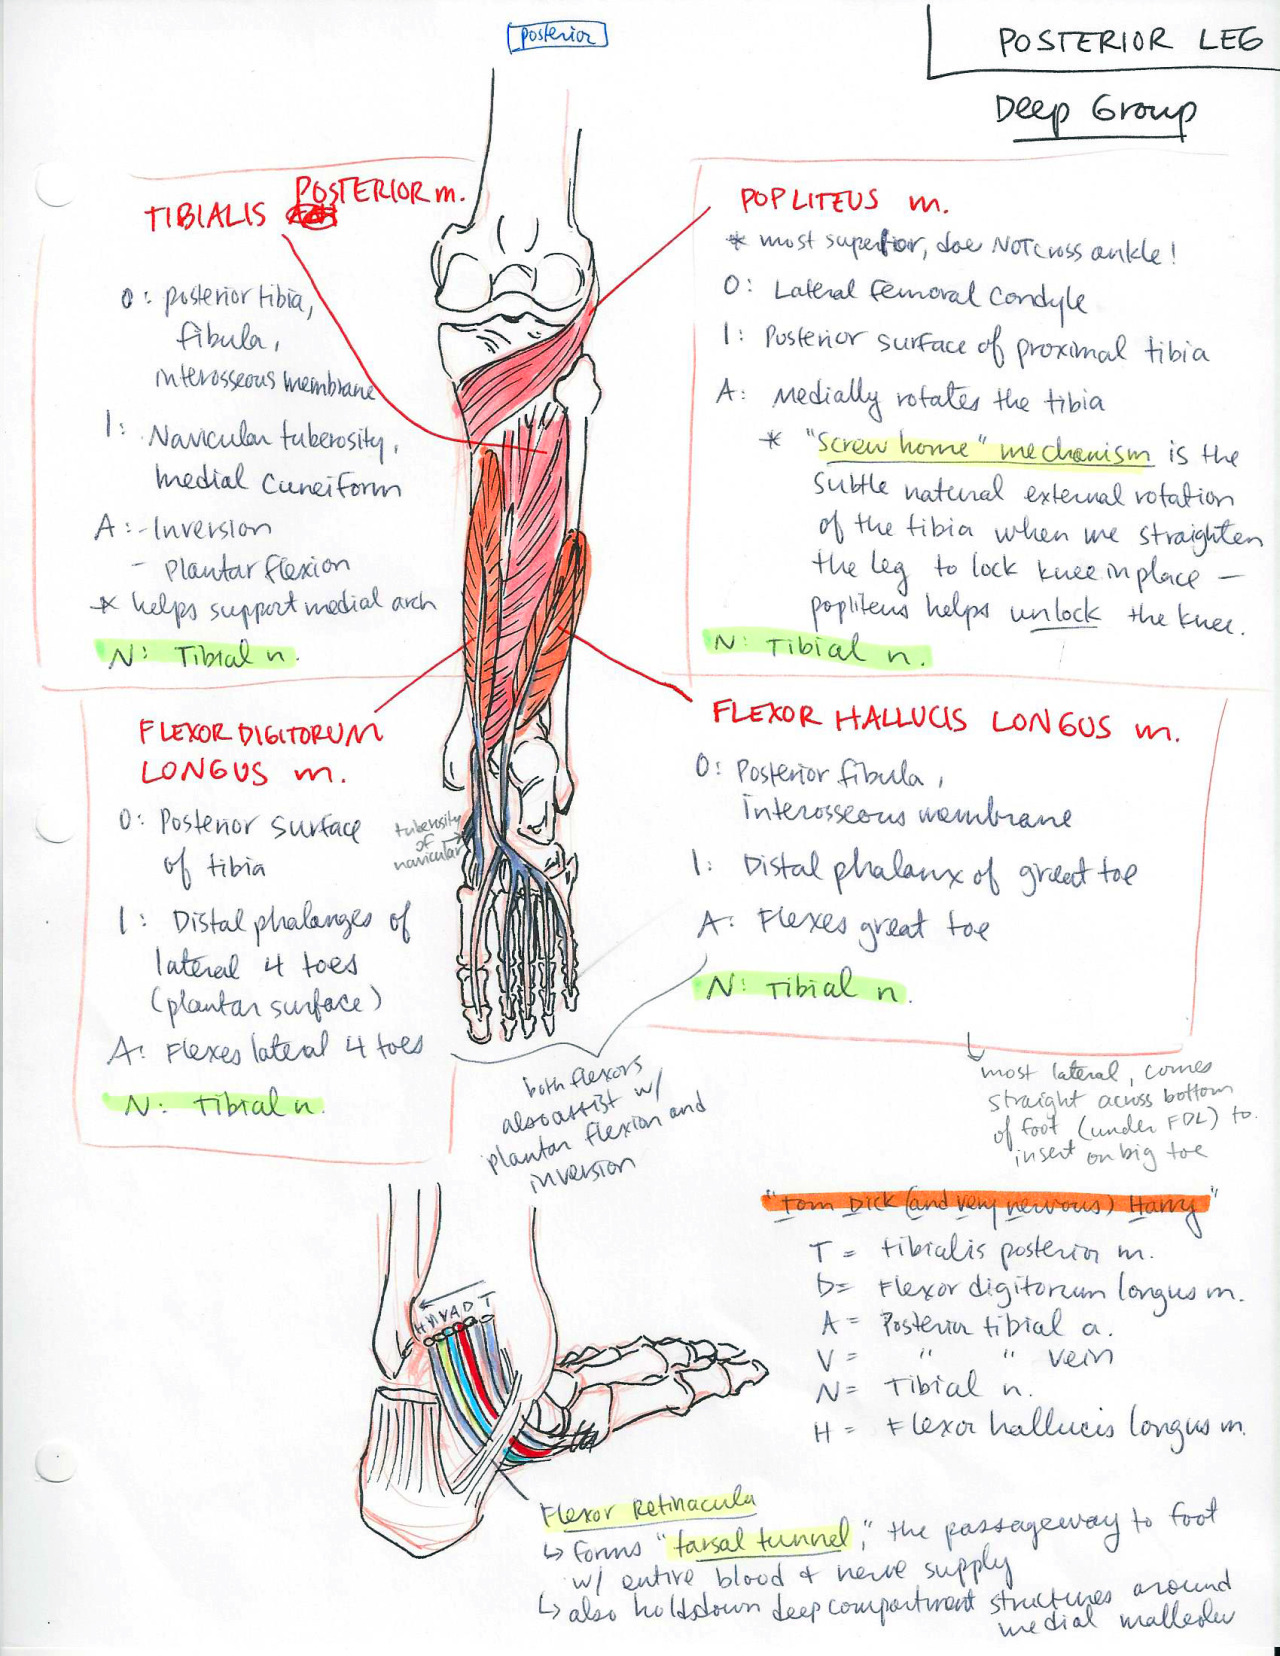 posterior
POSTERIOR LEG
Deep Group
TIBIALIS POSTERIOR m.
O: posterior tibia,
fibula,
interosseous membrane
I: Navicular tuberosity,
medial cuneiform
A: - Inversion
- plantar flexion
* helps support medial arch
N: Tibial n.
POPLITEUS m.
* most superior, doe NOT cross ankle!
O: Lateral femoral condyle
I: Posterior surface of proximal tibia
A: Medially rotates the tibia
* "Screw home" mechanism is the
subtle natural external rotation
of the tibia when we straighten
the leg to lock knee in place -
popliteus helps unlock the knee.
N: Tibial n.
FLEXOR DIGITORUM
LONGUS m.
O: Posterior surface
of tibia
I: Distal phalanges of
lateral 4 toes
(plantar surface)
A: Flexes lateral 4 toes
N: Tibial n.
tuberosity
of
navicular
FLEXOR HALLUCIS LONGUS m.
O: Posterior fibula,
interosseous membrane
I: Distal phalanx of great toe
A: Flexes great toe
N: Tibial n.
both flexors
also assist w/
plantar flexion and
inversion
most lateral, comes
straight across bottom
of foot (under FDL) to
insert on big toe
"Tom Dick (and very nervous) Harry"
T = tibialis posterior m.
D = Flexor digitorum longus m.
A = Posterior tibial a.
V = " " vein
N = Tibial n.
H = Flexor hallucis longus m.
H N V A D T
Flexor Retinacula
↳ forms "tarsal tunnel," the passageway to foot
w/ entire blood + nerve supply
↳ also holds down deep compartment structures around
medial malleolus